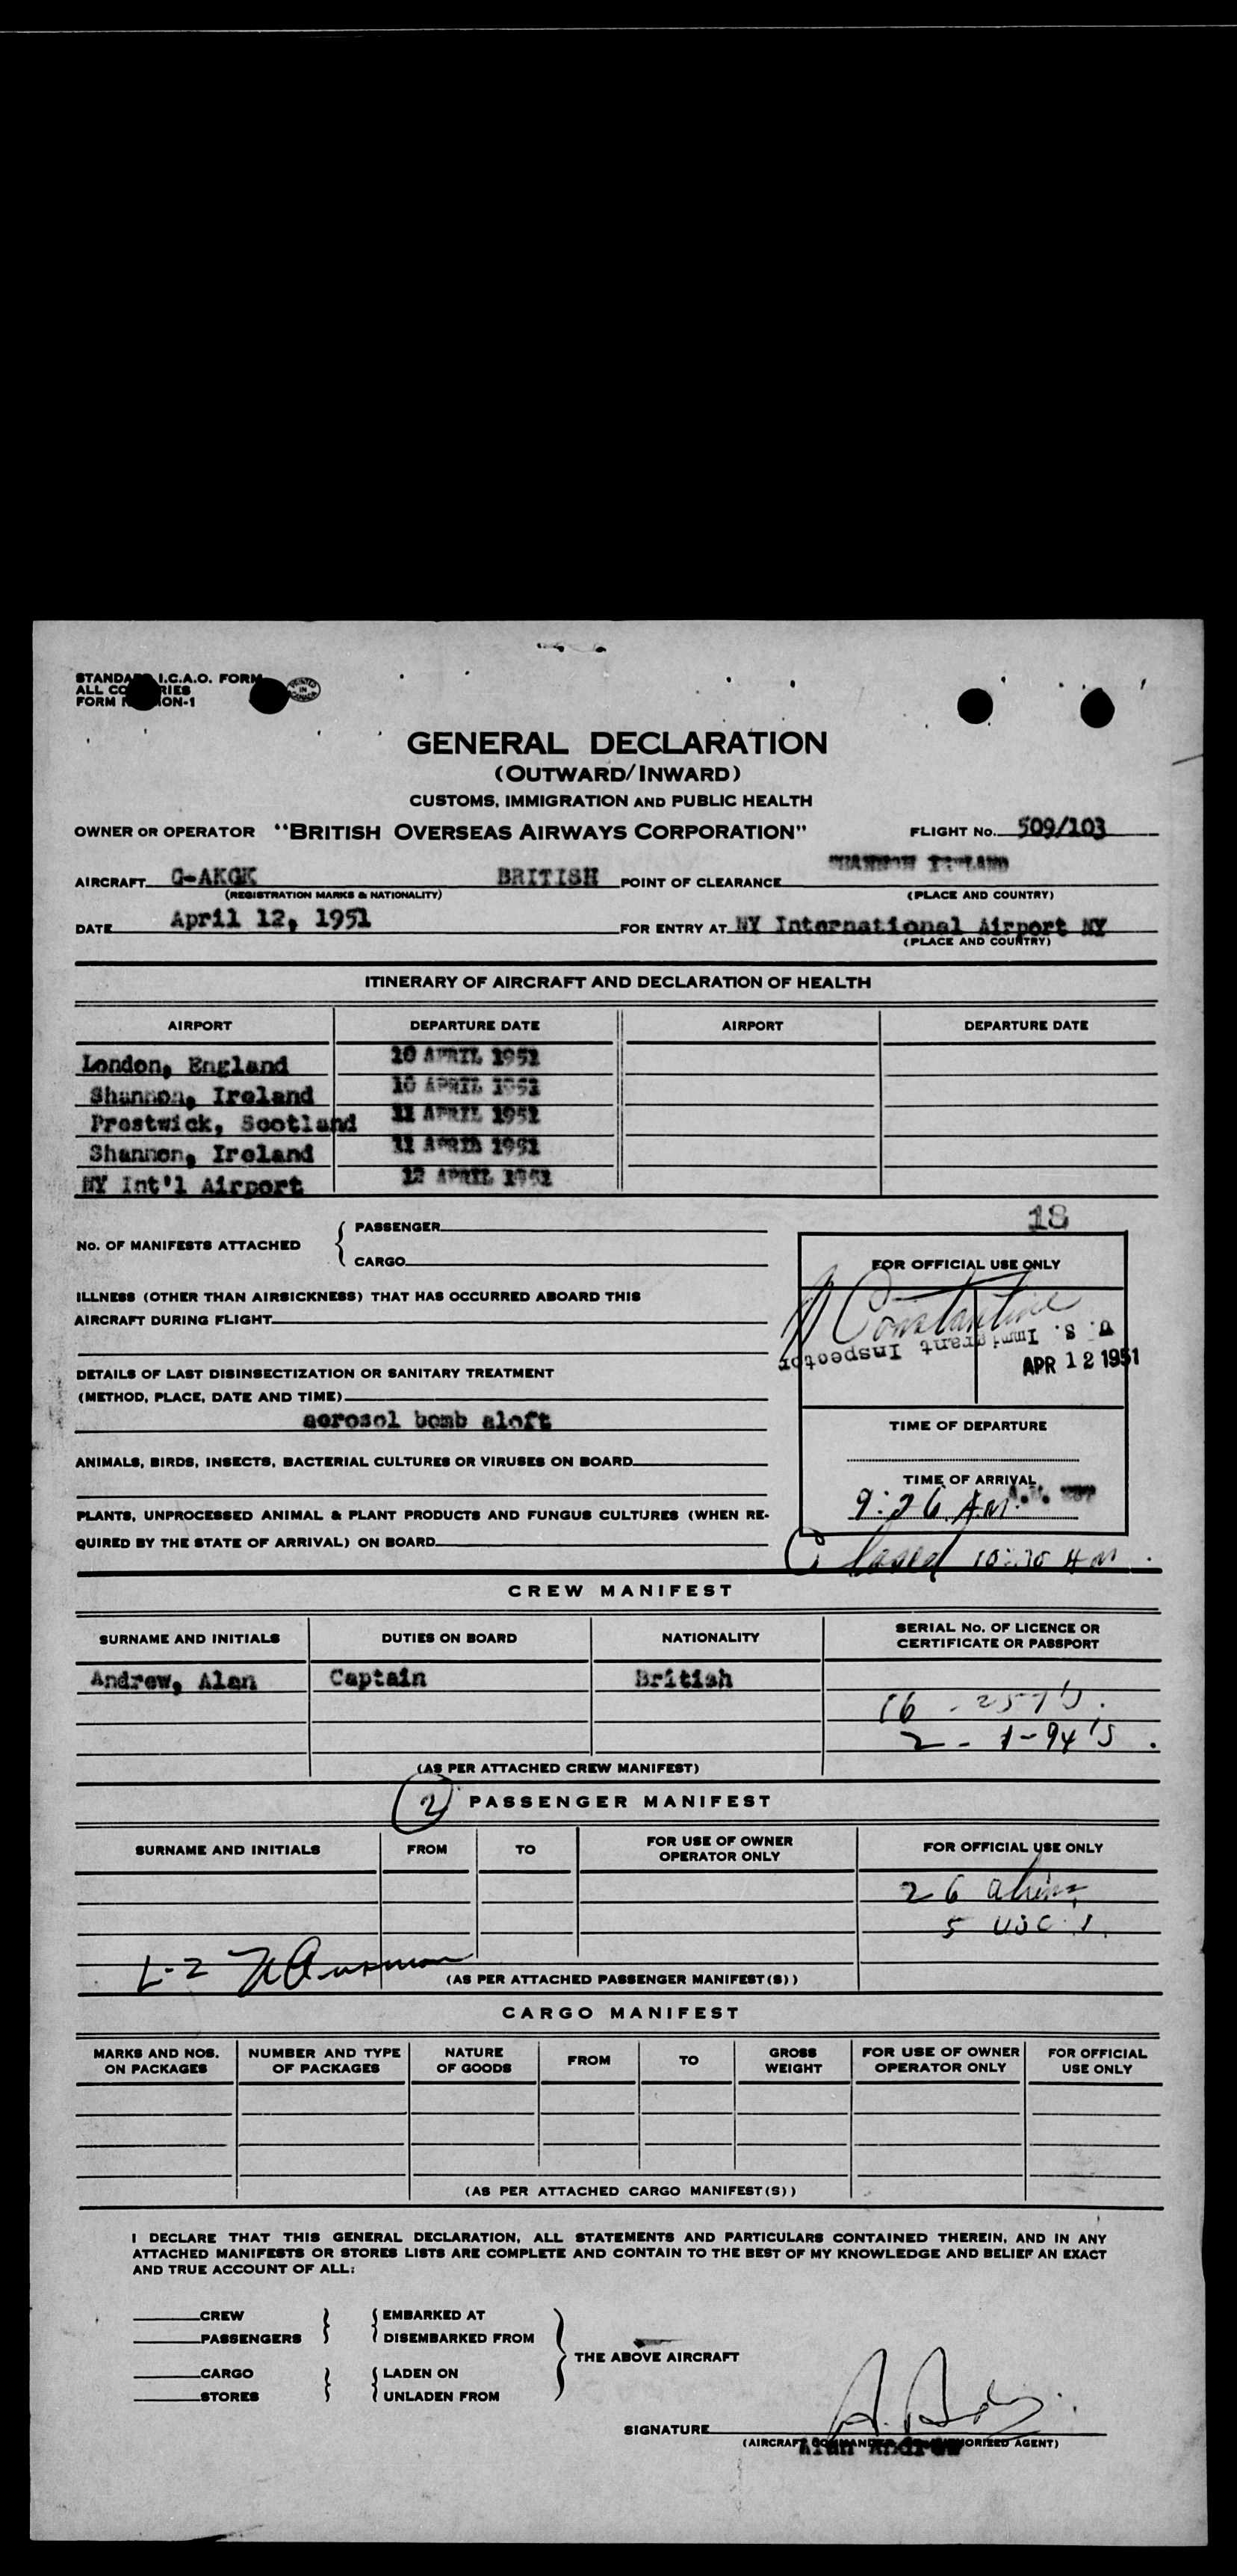 STANDARD I.C.A.O. FORM
ALL COUNTRIES
FORM ION-1
PRINTED IN CANADA
GENERAL DECLARATION
(OUTWARD/INWARD)
CUSTOMS, IMMIGRATION AND PUBLIC HEALTH
OWNER OR OPERATOR "BRITISH OVERSEAS AIRWAYS CORPORATION" FLIGHT No. 509/103
SHANNON IRELAND
AIRCRAFT G-AKGK BRITISH POINT OF CLEARANCE
(REGISTRATION MARKS & NATIONALITY) (PLACE AND COUNTRY)
DATE April 12, 1951 FOR ENTRY AT NY International Airport NY
(PLACE AND COUNTRY)
ITINERARY OF AIRCRAFT AND DECLARATION OF HEALTH
AIRPORT DEPARTURE DATE AIRPORT DEPARTURE DATE
London, England 10 APRIL 1951
Shannon, Ireland 10 APRIL 1951
Prestwick, Scotland 11 APRIL 1951
Shannon, Ireland 11 APRIL 1951
NY Int'l Airport 12 APRIL 1951
18
No. OF MANIFESTS ATTACHED { PASSENGER
CARGO
FOR OFFICIAL USE ONLY
Constantine
U. S. Immigrant Inspector
APR 12 1951
ILLNESS (OTHER THAN AIRSICKNESS) THAT HAS OCCURRED ABOARD THIS
AIRCRAFT DURING FLIGHT
DETAILS OF LAST DISINSECTIZATION OR SANITARY TREATMENT
(METHOD, PLACE, DATE AND TIME)
aerosol bomb aloft
TIME OF DEPARTURE
ANIMALS, BIRDS, INSECTS, BACTERIAL CULTURES OR VIRUSES ON BOARD
TIME OF ARRIVAL
9:26 A.M.
PLANTS, UNPROCESSED ANIMAL & PLANT PRODUCTS AND FUNGUS CULTURES (WHEN RE-
QUIRED BY THE STATE OF ARRIVAL) ON BOARD
Closed
CREW MANIFEST
SURNAME AND INITIALS DUTIES ON BOARD NATIONALITY SERIAL No. OF LICENCE OR
CERTIFICATE OR PASSPORT
Andrew, Alan Captain British
16 - 257's.
2 - 1-94's.
(AS PER ATTACHED CREW MANIFEST)
2 PASSENGER MANIFEST
SURNAME AND INITIALS FROM TO FOR USE OF OWNER
OPERATOR ONLY FOR OFFICIAL USE ONLY
26 aliens
5 USC's
L-2
(AS PER ATTACHED PASSENGER MANIFEST(S))
CARGO MANIFEST
MARKS AND NOS.
ON PACKAGES NUMBER AND TYPE
OF PACKAGES NATURE
OF GOODS FROM TO GROSS
WEIGHT FOR USE OF OWNER
OPERATOR ONLY FOR OFFICIAL
USE ONLY
(AS PER ATTACHED CARGO MANIFEST(S))
I DECLARE THAT THIS GENERAL DECLARATION, ALL STATEMENTS AND PARTICULARS CONTAINED THEREIN, AND IN ANY
ATTACHED MANIFESTS OR STORES LISTS ARE COMPLETE AND CONTAIN TO THE BEST OF MY KNOWLEDGE AND BELIEF AN EXACT
AND TRUE ACCOUNT OF ALL:
CREW } { EMBARKED AT
PASSENGERS DISEMBARKED FROM
THE ABOVE AIRCRAFT
CARGO } { LADEN ON
STORES UNLADEN FROM
SIGNATURE
(AIRCRAFT COMMANDER OR AUTHORIZED AGENT)
Alan Andrew